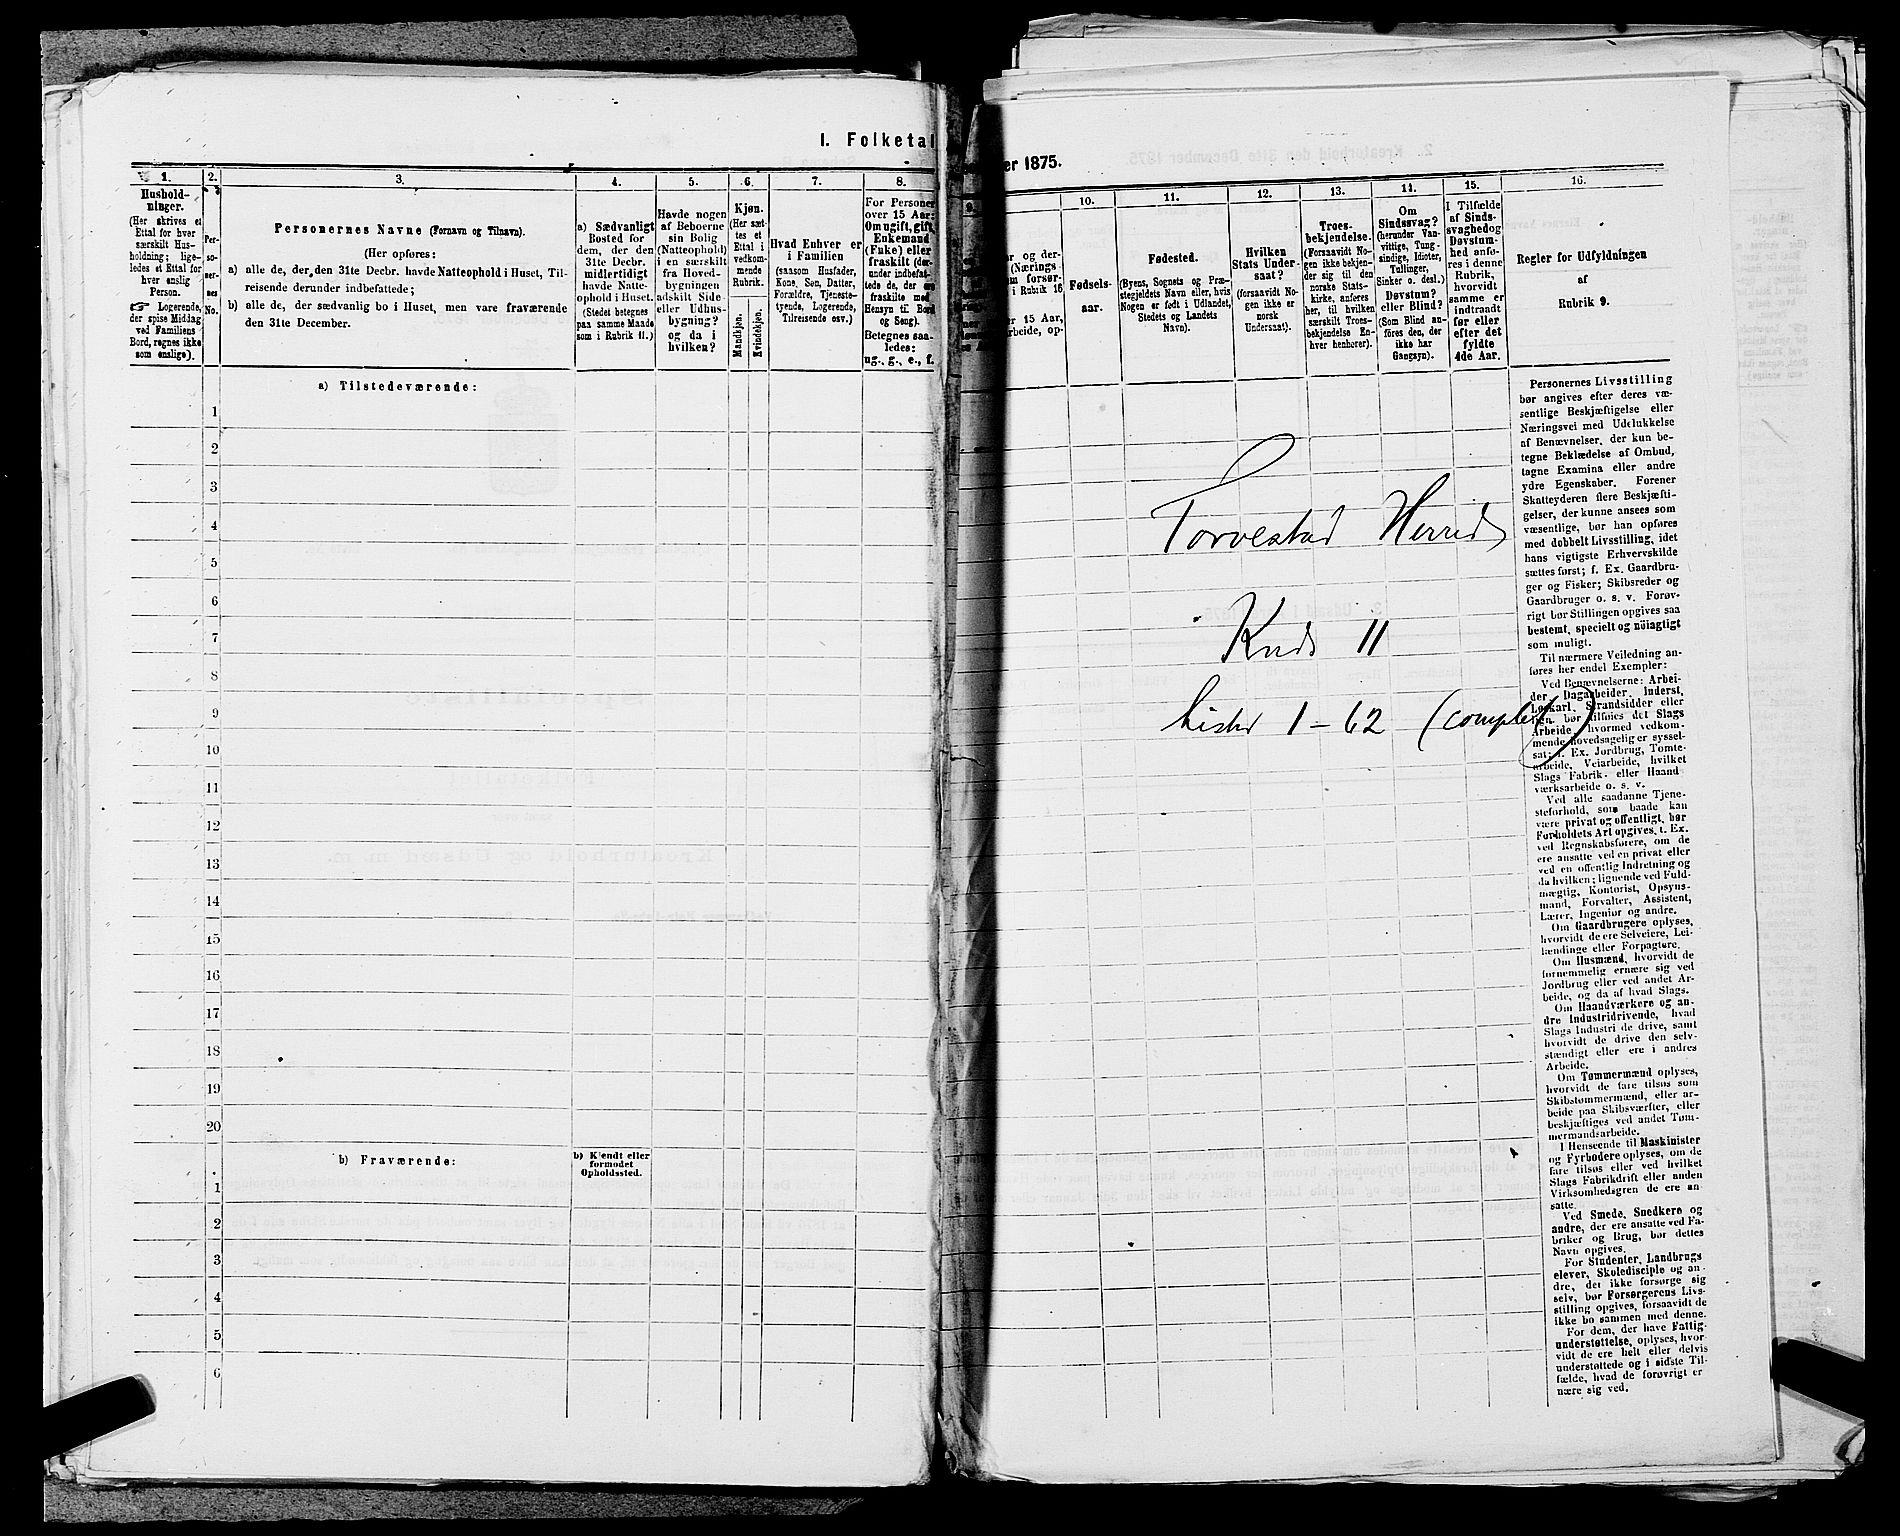 I. Folketal
1.
2.
3.
4.
5.
6.
7.
8.
Hushold-
ninger.
(Her skrives et
Ettal for hver
særskilt Hus-
holdning; lige-
ledes et Ettal for
hver enslig
Person.
☞ Logerende,
der spise Middag
ved Familiens
Bord, regnes ikke
som enslige).
Per-
so-
ner-
nes
No.
Personernes Navne (Fornavn og Tilnavn).
(Her opføres:
a) alle de, der den 31te Decbr. havde Natteophold i Huset, Til-
reisende derunder indbefattede;
b) alle de, der sædvanlig bo i Huset, men vare fraværende
den 31te December.
a) Sædvanligt
Bosted for
dem, der den
31te Decbr.
midlertidigt
havde Natte-
ophold i Huset.
(Stedet betegnes
paa samme Maade
som i Rubrik 11.)
Havde nogen
af Beboerne
sin Bolig
(Natteophold)
i en særskilt
fra Hoved-
bygningen
adskilt Side-
eller Udhus-
bygning?
og da i
hvilken?
Kjøn.
(Her sæt-
tes et
Ettal i
vedkom-
mende
Rubrik.
Mandkjøn.
Kvindekjøn.
Hvad Enhver er
i Familien
(saasom Husfader,
Kone, Søn, Datter,
Forældre, Tjeneste-
tyende, Logerende,
Tilreisende osv.)
For Personer
over 15 Aar:
Om ugift, gift,
Enkemand
(Enke) eller
fraskilt (der-
under indbefat-
tede de, der ere
fraskilte med
Hensyn til Bord
og Seng).
Betegnes saa-
ledes:
ug., g., e., f.
a) Tilstedeværende:
1
2
3
4
5
6
7
8
9
10
11
12
13
14
15
16
17
18
19
20
b) Fraværende:
b) Kjendt eller
formodet
Opholdssted.
1
2
3
4
5
6
er 1875.
9.
10.
11.
12.
13.
14.
15.
16.
og der-
(Nærings
forsør-
i Rubrik 16
15 Aar,
beide, op-
Fødsels-
aar.
Fødested.
(Byens, Sognets og Præ-
stegjeldets Navn eller, hvis
Nogen er født i Udlandet,
Stedets og Landets
Navn).
Hvilken
Stats Under-
saat?
(forsaavidt No-
gen ikke er
norsk
Undersaat).
Troes-
bekjendelse.
(Forsaavidt No-
gen ikke bekjen-
der sig til den
norske Stats-
kirke, anføres
her, til hvilken
særskilt Troes-
bekjendelse En-
hver henhører).
Om
Sindssvag?
(herunder Van-
vittige, Tung-
sindige, Idioter,
Tullinger,
Sinker o. desl.)
Døvstum?
eller Blind?
(Som Blind an-
føres den, der
ikke har
Gangsyn).
I Tilfælde
af Sinds-
svaghed og
Døvstum-
hed anfø-
res i denne
Rubrik,
hvorvidt
samme er
indtraadt
før eller
efter det
fyldte
4de Aar.
Regler for Udfyldningen
af
Rubrik 9.
Torvestad Herred
Kreds 11
Lister 1-62 (complet)
Personernes Livsstilling
bør angives efter deres væ-
sentlige Beskjæftigelse eller
Næringsvei med Udelukkelse
af Benævnelser, der kun be-
tegne Beklædelse af Ombud,
tagne Examina eller andre
ydre Egenskaber. Forener
Skatteyderen flere Beskjæfti-
gelser, der kunne ansees som
væsentlige, bør han opføres
med dobbelt Livsstilling, idet
hans vigtigste Erhvervskilde
sættes først; f. Ex. Gaardbru-
ger og Fisker; Skibsreder og
Gaardbruger o. s. v. Forøv-
rigt bør Stillingen opgives saa
bestemt, specielt og nöiagtigt
som muligt.
Til nærmere Veiledning an-
føres her endel Exempler:
Ved Benævnelserne: Arbei-
der, Dagarbeider, Inderst,
Løskarl, Strandsidder eller
lign. bør tilføies det Slags
Arbeide, hvormed vedkom-
mende hovedsagelig er syssel-
sat; f. Ex. Jordbrug, Tomte-
arbeide, Veiarbeide, hvilket
Slags Fabrik- eller Haand-
værksarbeide o. s. v.
Ved alle saadanne Tjene-
steforhold, som baade kan
være privat og offentligt, bør
Forholdets Art opgives, t. Ex.
ved Regnskabsførere, om de
ere ansatte ved en privat eller
ved en offentlig Indretning og
da hvilken; lignende ved Fuld-
mægtig, Kontorist, Opsyns-
mand, Forvalter, Assistent,
Lærer, Ingeniør og andre.
Om Gaardbrugere oplyses,
hvorvidt de ere Selveiere, Lei-
lændinge eller Forpagtere.
Om Husmænd, hvorvidt de
fornemmelig ernære sig ved
Jordbrug eller ved andet Ar-
beide, og da af hvad Slags.
Om Haandværkere og an-
dre Industridrivende, hvad
Slags Industri de drive, samt
hvorvidt de drive den selv-
stændigt eller ere i andres
Arbeide.
Om Tømmermænd oplyses,
hvorvidt de fare tilsøs som
Skibstømmermænd, eller ar-
beide paa Skibsværfter, eller
beskjæftiges ved andet Tøm-
mermandsarbeide.
I Henseende til Maskinister
og Fyrbødere oplyses, om de
fare tilsøs eller ved hvilket
Slags Fabrikdrift eller anden
Virksomhedsgren de ere an-
satte.
Ved Smede, Snedkere og
andre, der ere ansatte ved Fa-
briker og Brug, bør dettes
Navn opgives.
For Studenter, Landbrugs-
elever, Skoledisciple og an-
dre, der ikke forsørge sig
selv, bør Forsørgerens Livs-
stilling opgives, forsaavidt de
ikke bo sammen med denne.
For dem, der have Fattig-
understøttelse, oplyses, hvor-
vidt de ere helt eller delvis
understøttede og i sidste Til-
fælde, hvad de forøvrigt er
nære sig ved.